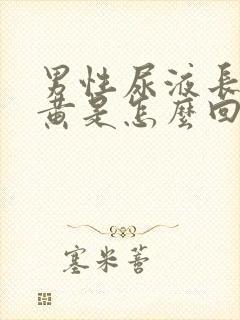 男性尿液長
黃是怎麼回
塞米蒈